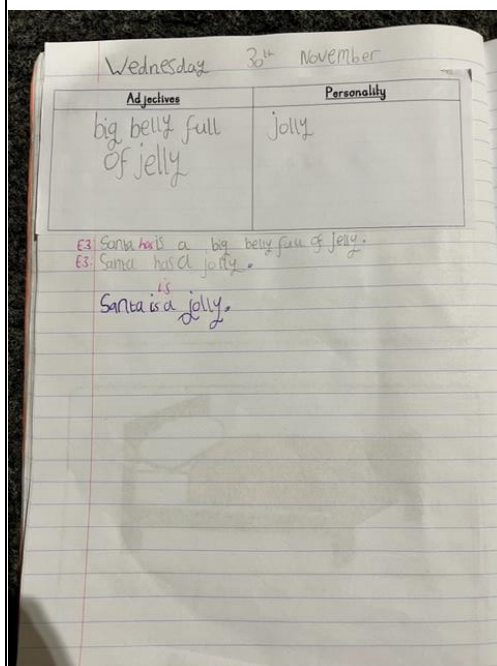 Wednesday 30th November
Adjectives Personality
big belly full jolly
of jelly
E3 Santa has is a big belly full of jelly.
E3. Santa has a jolly.
is
Santa is a jolly.